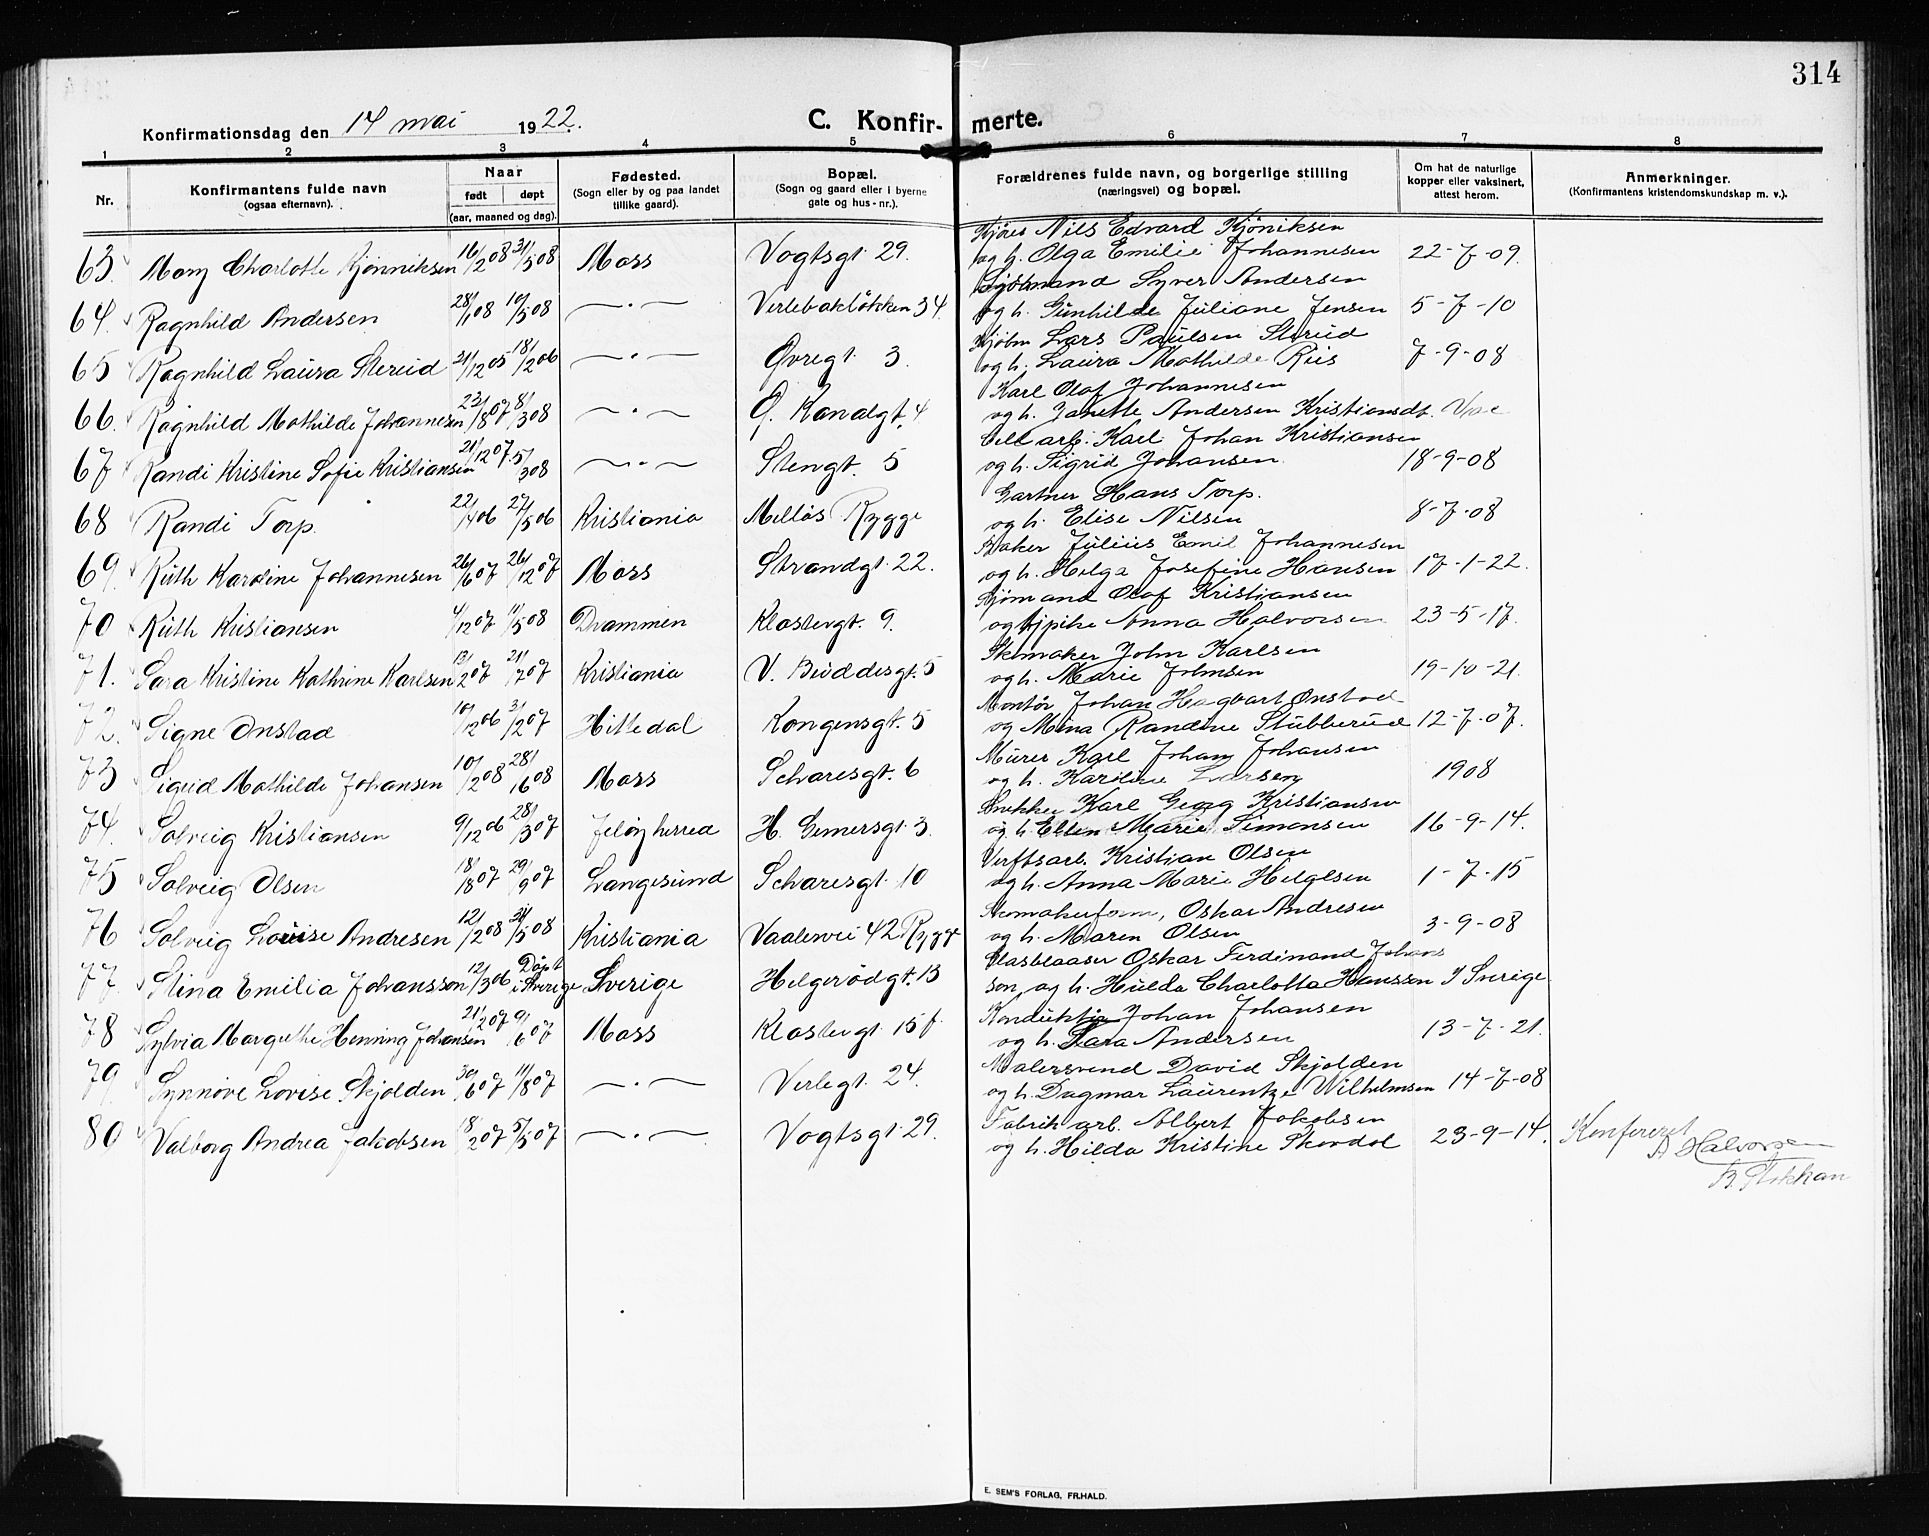 314
Konfirmationsdag den 14 mai 1922.
C. Konfir- merte.
1 2 3 4 5 6 7 8
Nr.
Konfirmantens fulde navn
(ogsaa efternavn).
Naar
født døpt
(aar, maaned og dag).
Fødested.
(Sogn eller by og paa landet
tillike gaard).
Bopæl.
(Sogn og gaard eller i byerne
gate og hus-nr.).
Forældrenes fulde navn, og borgerlige stilling
(næringsvei) og bopæl.
Om hat de naturlige
kopper eller vaksinert,
attest herom.
Anmerkninger.
(Konfirmantens kristendomskundskap m. v.).
Nils Edvard Kjøniksen
63. Mary Charlotte Kjønniksen 16/2 08 31/5 08 Moss Vogtsgt. 29. og h. Olga Emilie Johannesen 22-7-09.
Syver Andersen
64. Ragnhild Andersen 28/1 08 10/5 08 —·— Verlebakløkken 34. og h. Gunhilde Juliane Jensen 5-7-10
Lars Paulsen Sterud
65 Ragnhild Laura Sterud 21/12 05 18/2 06 —·— Øvregt. 3. og h. Laura Mathilde Riis 7-9-08
Karl Olaf Johannesen
66. Ragnhild Mathilde Johannesen 23/8 07 8/3 08 —·— Ø. Kanalgt. 4 og h. Janette Andersen Kristiansdt.
Cell arb. Karl Johan Kristiansen
67 Randi Kristine Sofie Kristiansen 21/12 07. 5/3 08 —·— Stengt. 5 og h. Sigrid Johansen. 18-9-08
Gartner Hans Torp.
68 Randi Torp. 22/4 06 27/5 06 Kristiania Melløs Rygge og h. Elise Nilsen 8-7-08
Baker Julius Emil Johannesen
69. Ruth Karoline Johannesen 26/6 07 26/12 07 Moss Strandgt. 22. og h. Helga Josefine Hansen 17-1-22.
Sjømand Olaf Kristiansen
70 Ruth Kristiansen 4/12 07 11/5 08 Drammen Klostergt. 9. og pike Anna Halvorsen 23-5-17.
Skomaker John Karlsen
71. Sara Kristine Kathrine Karlsen 13/2 07 21/7 07 Kristiania V. Buddesgt. 5 og h. Marie Johnsen 19-10-21.
Montør Johan Hagbart Onstad
72. Signe Onstad 10/12 06 3/2 07 Hittedal Kongensgt. 5 og Mina Randine Stubberud 12-7-07.
Murer Karl Johan Johansen
73 Sigrid Mathilde Johansen 10/2 08 28/6 08 Moss Schavesgt. 6 og h. Karoline Larsen 1908
Snekker Karl Georg Kristiansen
74. Solveig Kristiansen 9/12 06 28/3 07 Jeløy herred H. Gernersgt. 3. og h. Ellen Marie Simonsen 16-9-14.
Verftsarb. Kristian Olsen
75 Solveig Olsen 18/8 07 29/9 07 Langesund Schavesgt. 10 og h. Anna Marie Helgesen 1-7-15
Oskar Andresen
76 Solveig Louise Andresen 12/2 08 31/5 08 Kristiania Vaalervei 42 Rygge og h. Maren Olsen 3-9-08
Glasblaaser Oskar Ferdinand Johans
77. Stina Emilia Johansson 12/3 06 Døpt i Sverige Sverige Helgerødgt. 13 son, og h. Hulda Charlotta Hansson I Sverige
Konduktør Johan Johansen
78 Sylvia Margrethe Henning Johansen 21/2 07 9/6 07 Moss Klostergt. 15 f. og h. Sara Andersen 13-7-21.
Malersvend David Skjolden
79. Synnøve Lovise Skjolden 30/6 07 11/8 07 —·— Verlegt. 24. og h. Dagmar Laurentze Wilhelmsen 14-7-08
Fabrik arb. Albert Jakobsen
80 Valborg Andrea Jakobsen 18/2 07 5/5 07 —·— Vogtsgt. 29. og h. Hilda Kristine Skordal 23-9-14. Konfereret
Halvorsen
B. Stokkan
E. SEM'S FORLAG, FR.HALD.